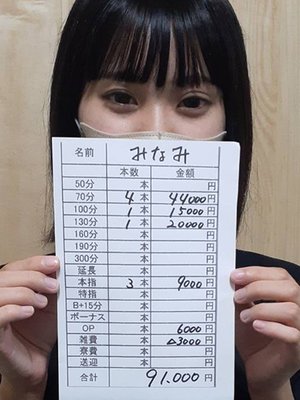 名前 みなみ
本数 金額
50分 本 円
70分 4本 44000円
100分 1本 15000円
130分 1本 20000円
160分 本 円
190分 本 円
300分 本 円
延長 本 円
本指 3本 9000円
特指 本 円
B+15分 本 円
ボーナス 円
OP 6000円
雑費 △3000円
寮費 円
送迎 円
合計 91.000円